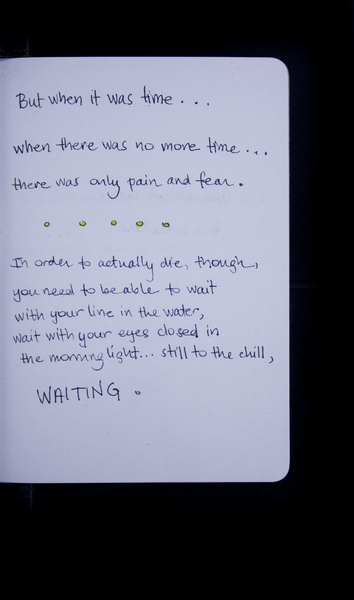 But when it was time . . .
when there was no more time . . .
there was only pain and fear.
In order to actually die, though,
you need to be able to wait
with your line in the water,
wait with your eyes closed in
the morning light... still to the chill,
WAITING.